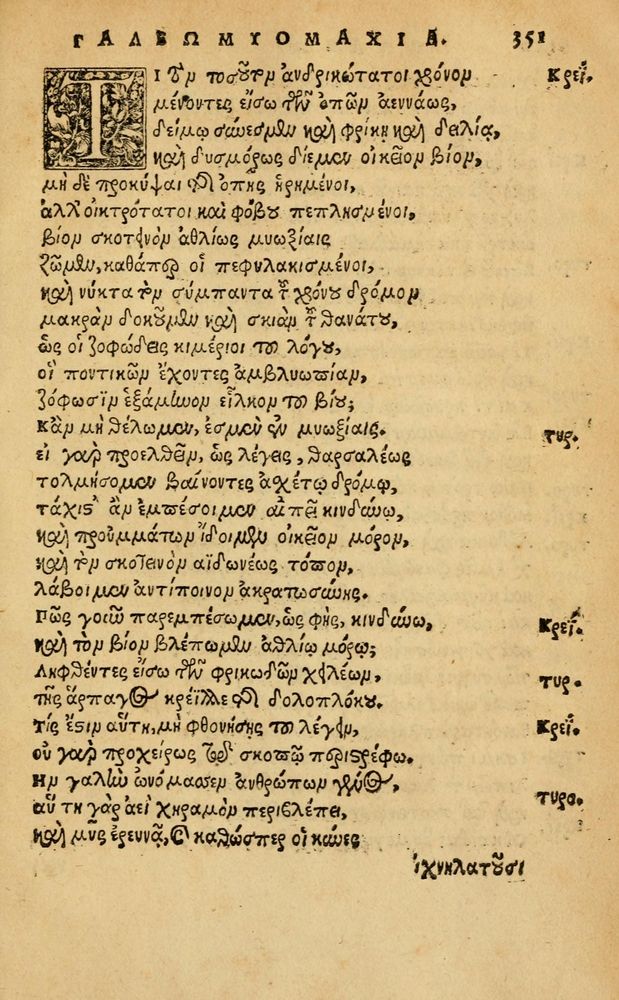 ΓΑΛΕΩΜΥΟΜΑΧΙΑ. 351
ΤΙ τὸν τοσοῦτον ἀνδρικώτατοι χρόνον Κρεΐ.
μένοντες εἴσω τῶν ὀπῶν ἀεννάως,
δείμῳ σύνεσμεν καὶ φρίκῃ καὶ δειλίᾳ,
καὶ δυσμόρως δίεμεν οἰκεῖον βίον,
μὴ δὲ προκύψαι τῆς ὀπῆς ᾑρημένοι,
ἀλλ' οἰκτρότατοι καὶ φόβου πεπλησμένοι,
βίον σκοτεινὸν ἀθλίως μυωξίαις
ζῶμεν, καθάπερ οἱ πεφυλακισμένοι,
καὶ νύκτα τὸν σύμπαντα τοῦ χρόνου δρόμον
μακρὰν δοκοῦμεν καὶ σκιὰν τοῦ θανάτου,
ὡς οἱ ζοφώδεις κιμέριοι τοῦ λόγου,
οἳ ποντικῶν ἔχοντες ἀμβλυωπίαν,
ζόφωσιν ἑξάμηνον εἷλκον τοῦ βίου;
Κἂν μὴ θέλωμεν, ἐσμὲν ἐν μυωξίαις. τυρ.
εἰ γὰρ προελθεῖν, ὡς λέγεις, θαρσαλέως
τολμήσομεν βαίνοντες ἀχέτῳ δρόμῳ,
τάχιστ' ἂν ἐμπέσοιμεν αἰπεῖ κινδύνῳ,
καὶ προυμμάτων ἴδοιμεν οἰκεῖον μόρον,
καὶ τὸν σκοτεινὸν ἀϊδωνέως τόπον,
λάβοιμεν ἀντίποινον ἀκρατωσύνης.
Πῶς γοῦν παρεμπέσωμεν, ὡς φῂς, κινδύνῳ, Κρεΐ.
καὶ τὸν βίον βλέπωμεν ἀθλίῳ μόρῳ;
Ληφθέντες εἴσω τῶν φρικωδῶν χειλέων, τυρ.
τῆς ἅρπαγος κρεΐλλε τῆς δολοπλόκου.
Τίς ἔστιν αὕτη, μὴ φθονήσῃς τοῦ λέγειν, Κρεΐ.
οὐ γὰρ προχείρως τὸν σκοπὸν περιστρέφω.
Ην γαλῆν ὠνόμασεν ἀνθρώπων γένος,
αὕτη γὰρ ἀεὶ χηραμὸν περιβλέπει, τυρο.
καὶ μῦς ἐρευνᾷ, καὶ καθώσπερ οἱ κύνες
ἰχνηλατοῦσι